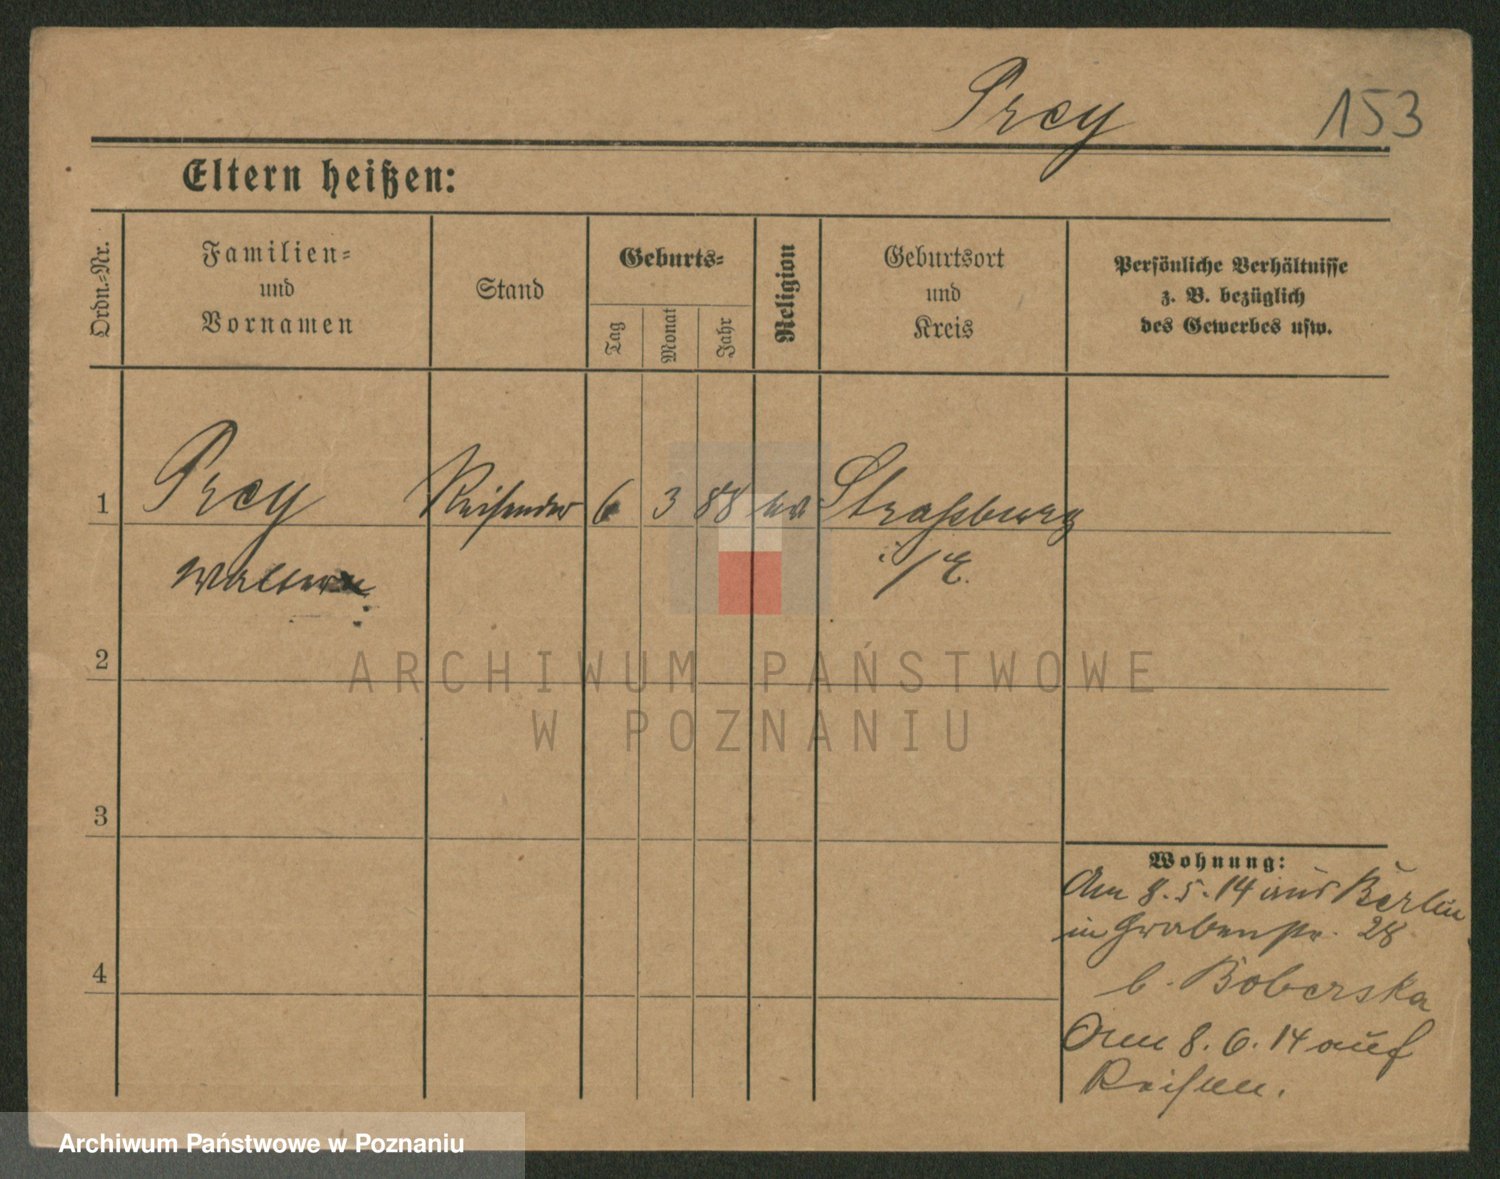 Prey 153
Eltern heißen:
Ordn.-Nr.
Familien-
und
Vornamen
Stand
Geburts-
Tag
Monat
Jahr
Religion
Geburtsort
und
Kreis
Persönliche Verhältnisse
z. B. bezüglich
des Gewerbes usw.
1 Prey Reisender 6 3 88 Straßburg
i/E.
2
3
4
Wohnung:
Am 8.5.14 aus Berlin
in Grabenstr. 28
b. Boberska
Am 8.6.14 auf
Reisen.
ARCHIWUM PAŃSTWOWE
W POZNANIU
Archiwum Państwowe w Poznaniu